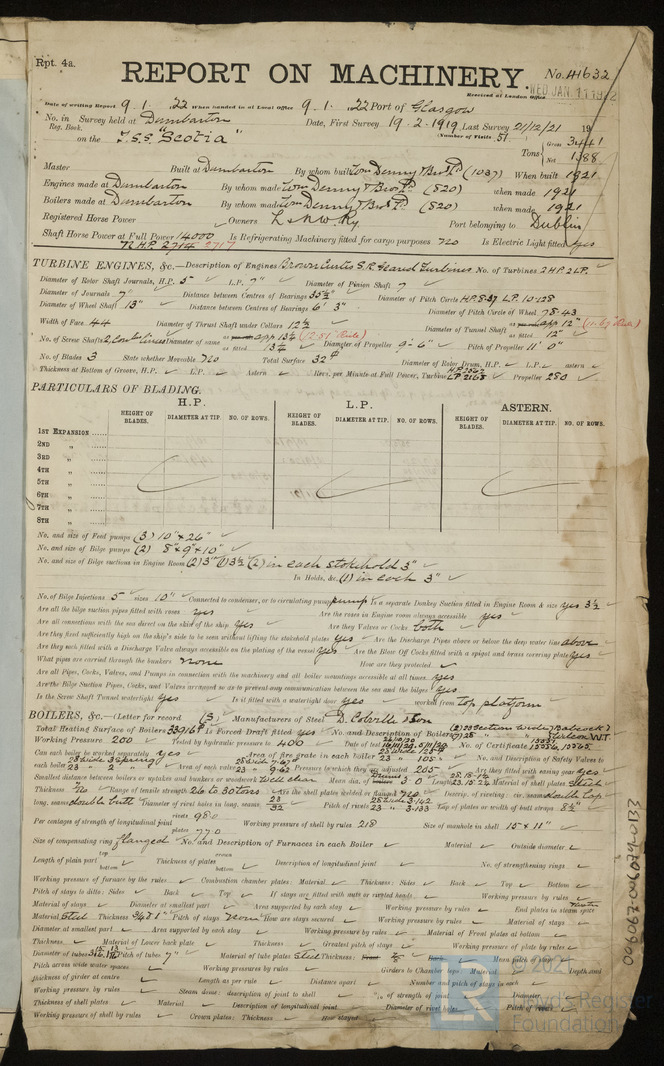 Rpt. 4a.
REPORT ON MACHINERY.
No. 41632
WED. JAN. 11 1922
Received at London Office
Date of writing Report 9 - 1 - 22 When handed in at Local Office 9 - 1 - 22 Port of Glasgow
No. in Survey held at Dumbarton Date, First Survey 19-2-1919 Last Survey 21/12/21 19
Reg. Book. (Number of Visits 51)
on the T.S.S. "Scotia" Tons Gross 3441
Net 1388
Master Built at Dumbarton By whom built Wm Denny & Bros Ld (1037) When built 1921
Engines made at Dumbarton By whom made Wm Denny & Bros Ld (820) when made 1921
Boilers made at Dumbarton By whom made Wm Denny & Bros Ld (820) when made 1921
Registered Horse Power Owners L & N W Ry Port belonging to Dublin
Shaft Horse Power at Full Power 14000 Is Refrigerating Machinery fitted for cargo purposes No Is Electric Light fitted yes
N H.P. 2714 2717
TURBINE ENGINES, &c.—Description of Engines Brown Curtis S.R. Geared Turbines No. of Turbines 2 HP. 2 LP.
Diameter of Rotor Shaft Journals, H.P. 5" L.P. 7" Diameter of Pinion Shaft 7
Diameter of Journals 7" Distance between Centres of Bearings 33½" Diameter of Pitch Circle HP. 8.37 LP. 10.128
Diameter of Wheel Shaft 13" Distance between Centres of Bearings 6' 3" Diameter of Pitch Circle of Wheel 78.43
Width of Face 44 Diameter of Thrust Shaft under Collars 12½ Diameter of Tunnel Shaft as app 12"
as fitted 12"
No. of Screw Shafts 2, Diameter of same as app 13¼ (12.51 Rule) Diameter of Propeller 9' - 6" Pitch of Propeller 11' 0"
as fitted 13½
No. of Blades 3 State whether Moveable No Total Surface 32 Diameter of Rotor Drum, H.P. L.P. astern
Thickness at Bottom of Groove, H.P. L.P. Astern Revs. per Minute at Full Power, Turbine L.P. 2168 Propeller 280
PARTICULARS OF BLADING.
H.P. L.P. ASTERN.
HEIGHT OF BLADES. DIAMETER AT TIP. NO. OF ROWS. HEIGHT OF BLADES. DIAMETER AT TIP. NO. OF ROWS. HEIGHT OF BLADES. DIAMETER AT TIP. NO. OF ROWS.
1ST EXPANSION
2ND "
3RD "
4TH "
5TH "
6TH "
7TH "
8TH "
No. and size of Feed pumps (3) 10" x 26"
No. and size of Bilge pumps (2) 8" x 9" x 10"
No. and size of Bilge suctions in Engine Room (2) 3" (1) 3½ (2) in each stokehold 3"
In Holds, &c. (1) in each 3"
No. of Bilge Injections 5 sizes 10" Connected to condenser, or to circulating pump pump Is a separate Donkey Suction fitted in Engine Room & size yes 3½
Are all the bilge suction pipes fitted with roses yes Are the roses in Engine room always accessible yes
Are all connections with the sea direct on the skin of the ship yes Are they Valves or Cocks both
Are they fixed sufficiently high on the ship's side to be seen without lifting the stokehold plates yes Are the Discharge Pipes above or below the deep water line above
Are they each fitted with a Discharge Valve always accessible on the plating of the vessel yes Are the Blow Off Cocks fitted with a spigot and brass covering plate yes
What pipes are carried through the bunkers none How are they protected
Are all Pipes, Cocks, Valves, and Pumps in connection with the machinery and all boiler mountings accessible at all times yes
Are the Bilge Suction Pipes, Cocks, and Valves arranged so as to prevent any communication between the sea and the bilges yes
Is the Screw Shaft Tunnel watertight yes Is it fitted with a watertight door yes worked from top platform
BOILERS, &c.—(Letter for record (S) Manufacturers of Steel D. Colville & Son
Total Heating Surface of Boilers 33916 Is Forced Draft fitted yes No. and Description of Boilers
Working Pressure 200 Tested by hydraulic pressure to 400 Date of test No. of Certificate
Can each boiler be worked separately yes Area of fire grate in each boiler 23 " 105 No. and Description of Safety Valves to
each boiler Area of each valve 23 " 9.62 Pressure to which they are adjusted 205 Are they fitted with easing gear yes
Smallest distance between boilers or uptakes and bunkers or woodwork Well clear Mean dia. of boilers 3' 0" Length Material of shell plates Steel
Thickness Range of tensile strength 26 to 30 tons Are the shell plates welded or flanged no Descrip. of riveting: cir. seams double lap
long. seams double butt Diameter of rivet holes in long. seams Pitch of rivets 23 " 3.133 Lap of plates or width of butt straps 8¾"
Per centages of strength of longitudinal joint rivets 98.0 Working pressure of shell by rules 218 Size of manhole in shell 15 x 11"
plates 77.0
Size of compensating ring flanged No. and Description of Furnaces in each Boiler Material Outside diameter
Length of plain part top bottom Thickness of plates crown bottom Description of longitudinal joint No. of strengthening rings
Working pressure of furnace by the rules Combustion chamber plates: Material Thickness: Sides Back Top Bottom
Pitch of stays to ditto: Sides Back Top If stays are fitted with nuts or riveted heads Working pressure by rules
Material of stays Diameter at smallest part Area supported by each stay Working pressure by rules End plates in steam space
Material Steel Thickness Pitch of stays none How are stays secured Working pressure by rules Material of stays
Diameter at smallest part Area supported by each stay Working pressure by rules Material of Front plates at bottom
Thickness Material of Lower back plate Thickness Greatest pitch of stays Working pressure of plate by rules
Diameter of tubes Pitch of tubes 7" Material of tube plates Steel Thickness: Mean pitch of stays
Pitch across wide water spaces Working pressures by rules Girders to Chamber tops: Material Depth and
thickness of girder at centre Length as per rule Distance apart Number and pitch of stays in each
Working pressure by rules Steam dome: description of joint to shell % of strength of joint Diameter
Thickness of shell plates Material Description of longitudinal joint Diameter of rivet holes Pitch of rivets
Working pressure of shell by rules Crown plates: Thickness How stayed
Lloyd's Register
Foundation